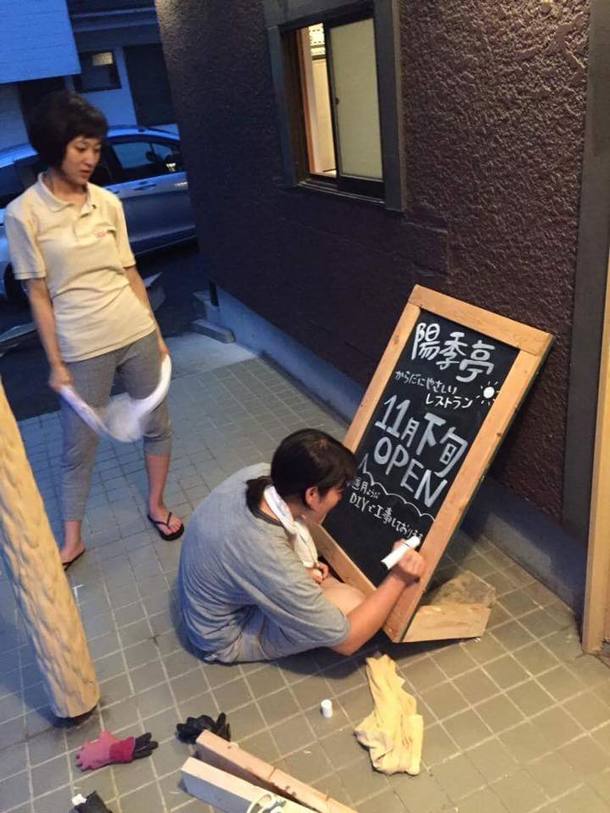 陽季亭
からだにやさしい
レストラン
11月下旬
OPEN
DIYで工事しており